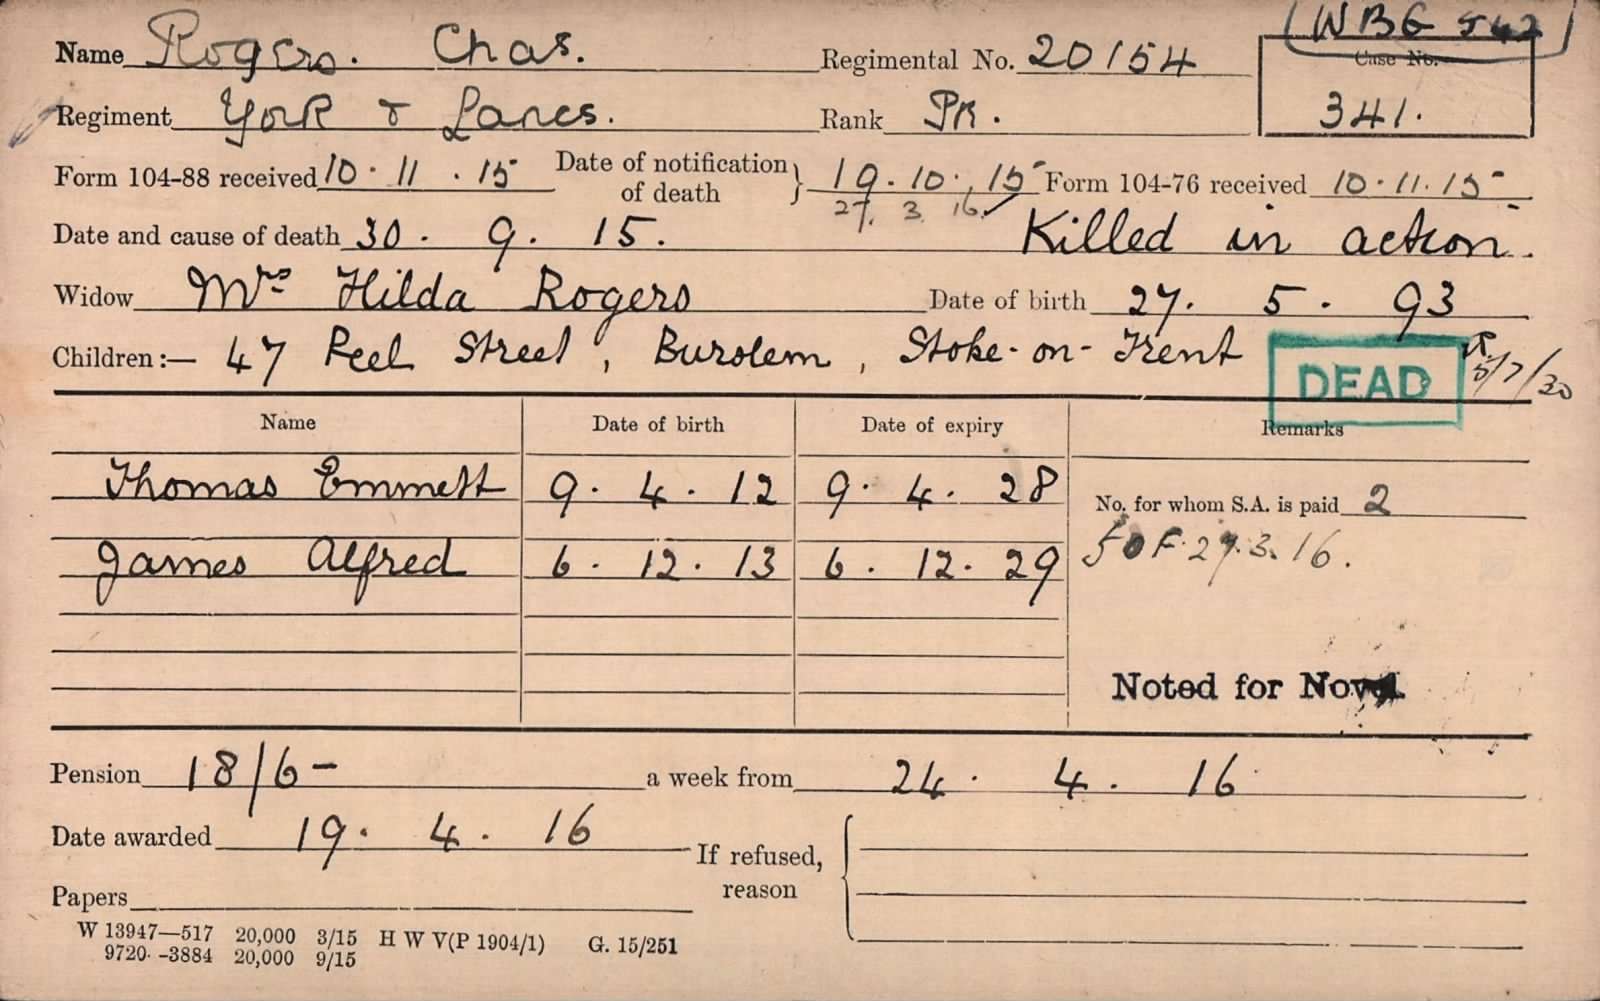 (WBG 542)
Name Rogers. Chas. Regimental No. 20154 Case No.
Regiment York & Lancs. Rank Pte. 341.
Form 104-88 received 10.11.15 Date of notification of death } 19.10.15 Form 104-76 received 10.11.15
27. 3 16
Date and cause of death 30. 9. 15. Killed in action.
Widow Mrs Hilda Rogers Date of birth 27. 5. 93
Children :— 47 Peel Street, Burslem, Stoke-on-Trent
DEAD 5/7/30
Name Date of birth Date of expiry Remarks
Thomas Emmett 9. 4. 12 9. 4. 28 No. for whom S.A. is paid 2
James Alfred 6. 12. 13 6. 12. 29 SOF. 27.3.16.
Noted for
Pension 18/6- a week from 24. 4. 16
Date awarded 19. 4. 16 If refused, reason
Papers
W 13947—517 20,000 3/15 H W V(P 1904/1) G. 15/251
9720--3884 20,000 9/15